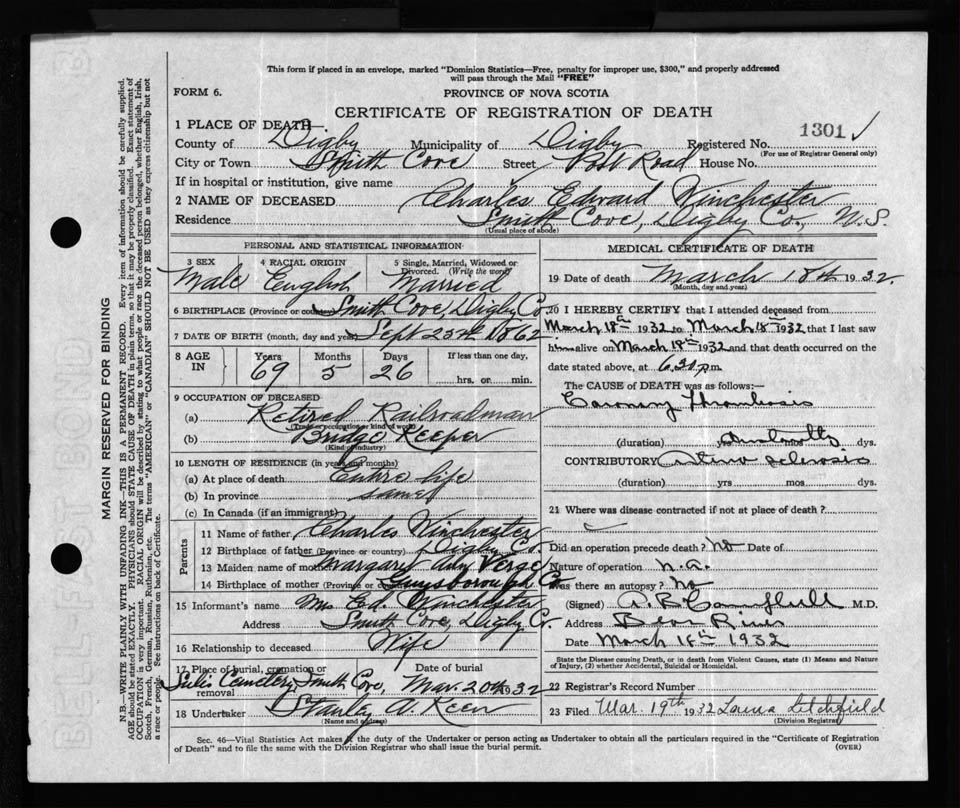 This form if placed in an envelope, marked "Dominion Statistics—Free, penalty for improper use, $300," and properly addressed
will pass through the Mail "FREE"
FORM 6.
PROVINCE OF NOVA SCOTIA
CERTIFICATE OF REGISTRATION OF DEATH
1301 ✓
1 PLACE OF DEATH
County of Digby Municipality of Digby Registered No.
(For use of Registrar General only)
City or Town Smith Cove Street Post Road House No.
If in hospital or institution, give name
2 NAME OF DECEASED Charles Edward Winchester
Residence Smith Cove, Digby Co., N.S.
(Usual place of abode)
PERSONAL AND STATISTICAL INFORMATION
3 SEX 4 RACIAL ORIGIN 5 Single, Married, Widowed or Divorced. (Write the word)
Male English Married
6 BIRTHPLACE (Province or country) Smith Cove, Digby Co.
7 DATE OF BIRTH (month, day and year) Sept 23rd 1862
8 AGE IN Years Months Days If less than one day,
69 5 26 hrs. or min.
9 OCCUPATION OF DECEASED
(a) Retired Railroadman
(Trade or occupation or kind of work)
(b) Bridge Keeper
(Kind of industry)
10 LENGTH OF RESIDENCE (in years and months)
(a) At place of death Entire life
(b) In province same
(c) In Canada (if an immigrant)
Parents
11 Name of father Charles Winchester
12 Birthplace of father (Province or country) Digby Co.
13 Maiden name of mother Margary Ann Verge
14 Birthplace of mother (Province or country) Guysborough Co
15 Informant's name Mrs Ed. Winchester
Address Smith Cove, Digby Co.
16 Relationship to deceased Wife
17 Place of burial, cremation or removal Date of burial
Cemetery Smith Cove, Mar. 20th 32
18 Undertaker Stanley A. Keen
(Name and address)
MEDICAL CERTIFICATE OF DEATH
19 Date of death March 18th 1932
(Month, day and year)
20 I HEREBY CERTIFY that I attended deceased from
March 18th 1932 to March 18th 1932 that I last saw
him alive on March 18th 1932 and that death occurred on
date stated above, at 6.30 p.m.
The CAUSE of DEATH was as follows:—
Coronary Thrombosis
(duration) yrs dys.
CONTRIBUTORY Arterio sclerosis
(duration) yrs mos dys.
21 Where was disease contracted if not at place of death?
Did an operation precede death? No Date of
Nature of operation n.a.
Was there an autopsy? No
(Signed) A. B. Campbell M.D.
Address Bear River
Date March 18th 1932
State the Disease causing Death, or in death from Violent Causes, state (1) Means and Nature
of Injury, (2) whether Accidental, Suicidal or Homicidal.
22 Registrar's Record Number
23 Filed Mar. 19th 1932 Laura Letchfield
(Division Registrar)
Sec. 46—Vital Statistics Act makes it the duty of the Undertaker or person acting as Undertaker to obtain all the particulars required in the "Certificate of Registration
of Death" and to file the same with the Division Registrar who shall issue the burial permit.
(OVER)
MARGIN RESERVED FOR BINDING
N.B.—WRITE PLAINLY WITH UNFADING INK—THIS IS A PERMANENT RECORD. Every item of information should be carefully supplied.
AGE should be stated EXACTLY. PHYSICIANS should STATE CAUSE OF DEATH in plain terms, so that it may be properly classified. Exact statement of
OCCUPATION is very important. RACIAL ORIGIN will be described by stating to what people or race the deceased person belonged, whether English, Irish,
Scotch, French, German, Russian, Ruthenian, etc. The terms "AMERICAN" or "CANADIAN" SHOULD NOT BE USED as they express citizenship but not
a race or people. See instructions on back of Certificate.